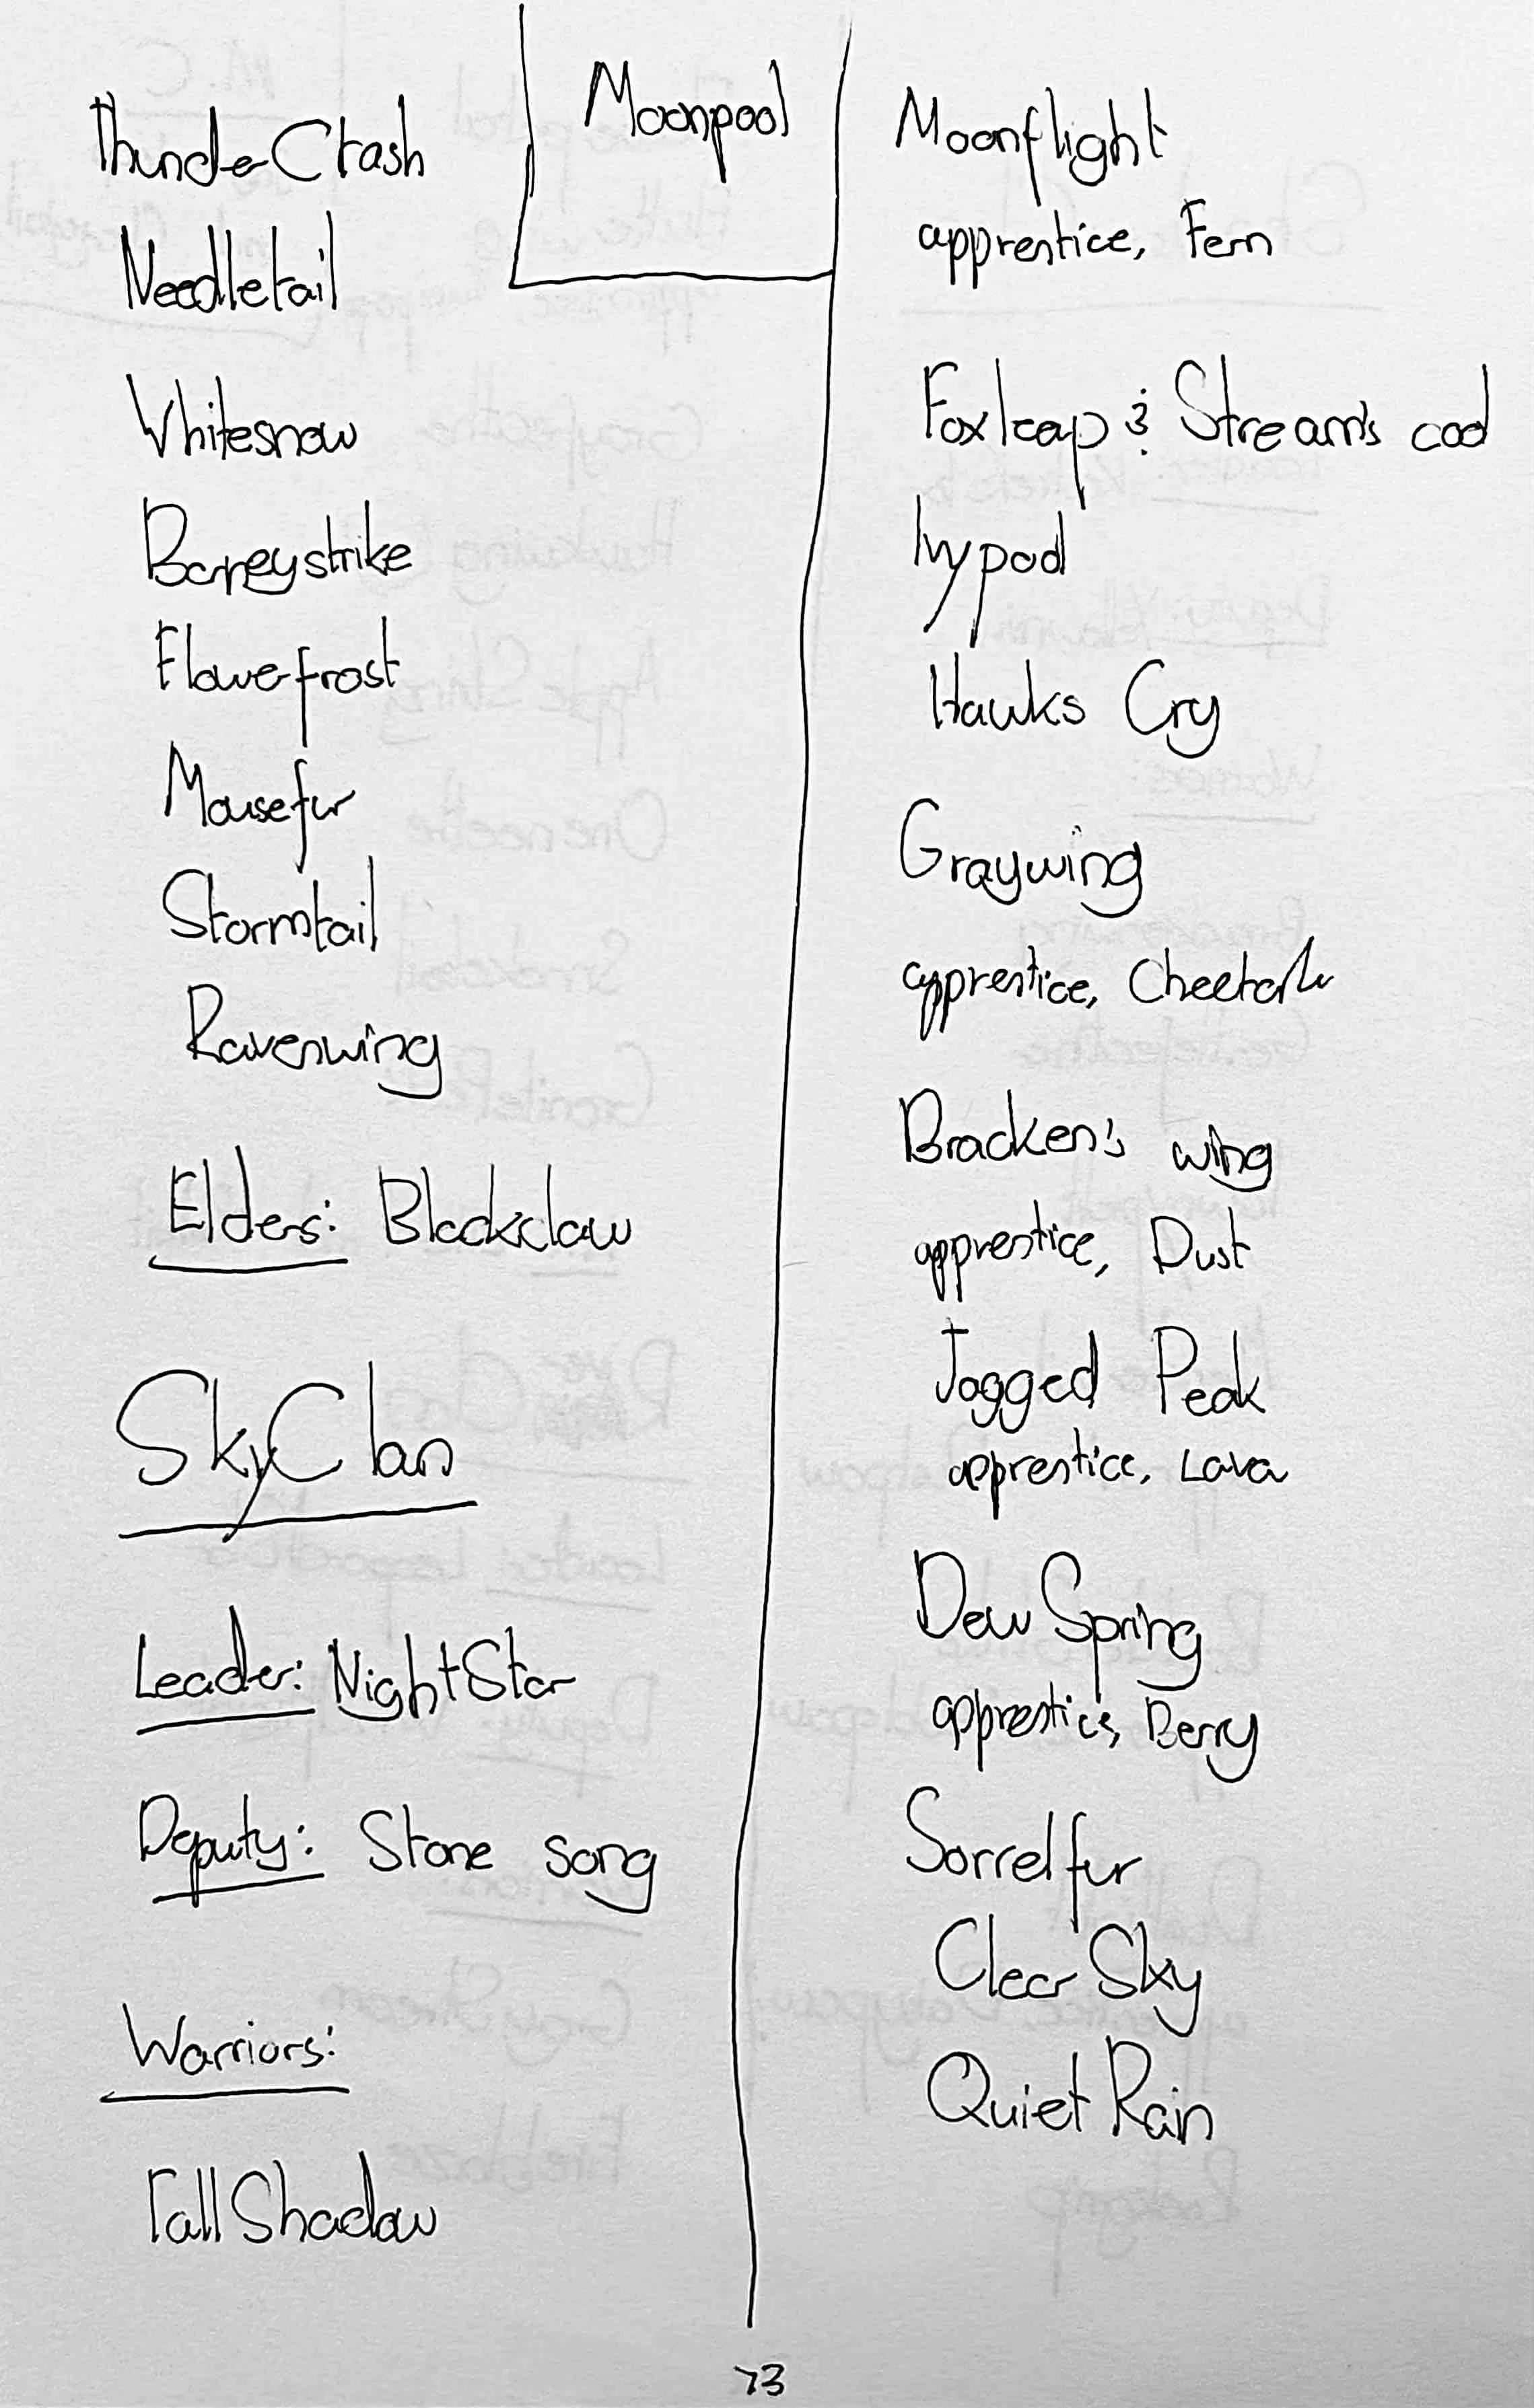 Moonpool
ThunderCrash
Needletail
Whitesnow
Barleystrike
Flowerfrost
Mousefur
Stormtail
Ravenwing
Elders: Blackclaw
SkyClan
Leader: NightStar
Deputy: Stone song
Warriors:
TallShadow
Moonflight
apprentice, Fern
Foxleap & Stream's cool
Ivypool
Hawks Cry
Graywing
apprentice, Cheetah
Bracken's wing
apprentice, Dust
Jagged Peak
apprentice, Lava
Dew Spring
apprentice, Berry
Sorrelfur
Clear Sky
Quiet Rain
73